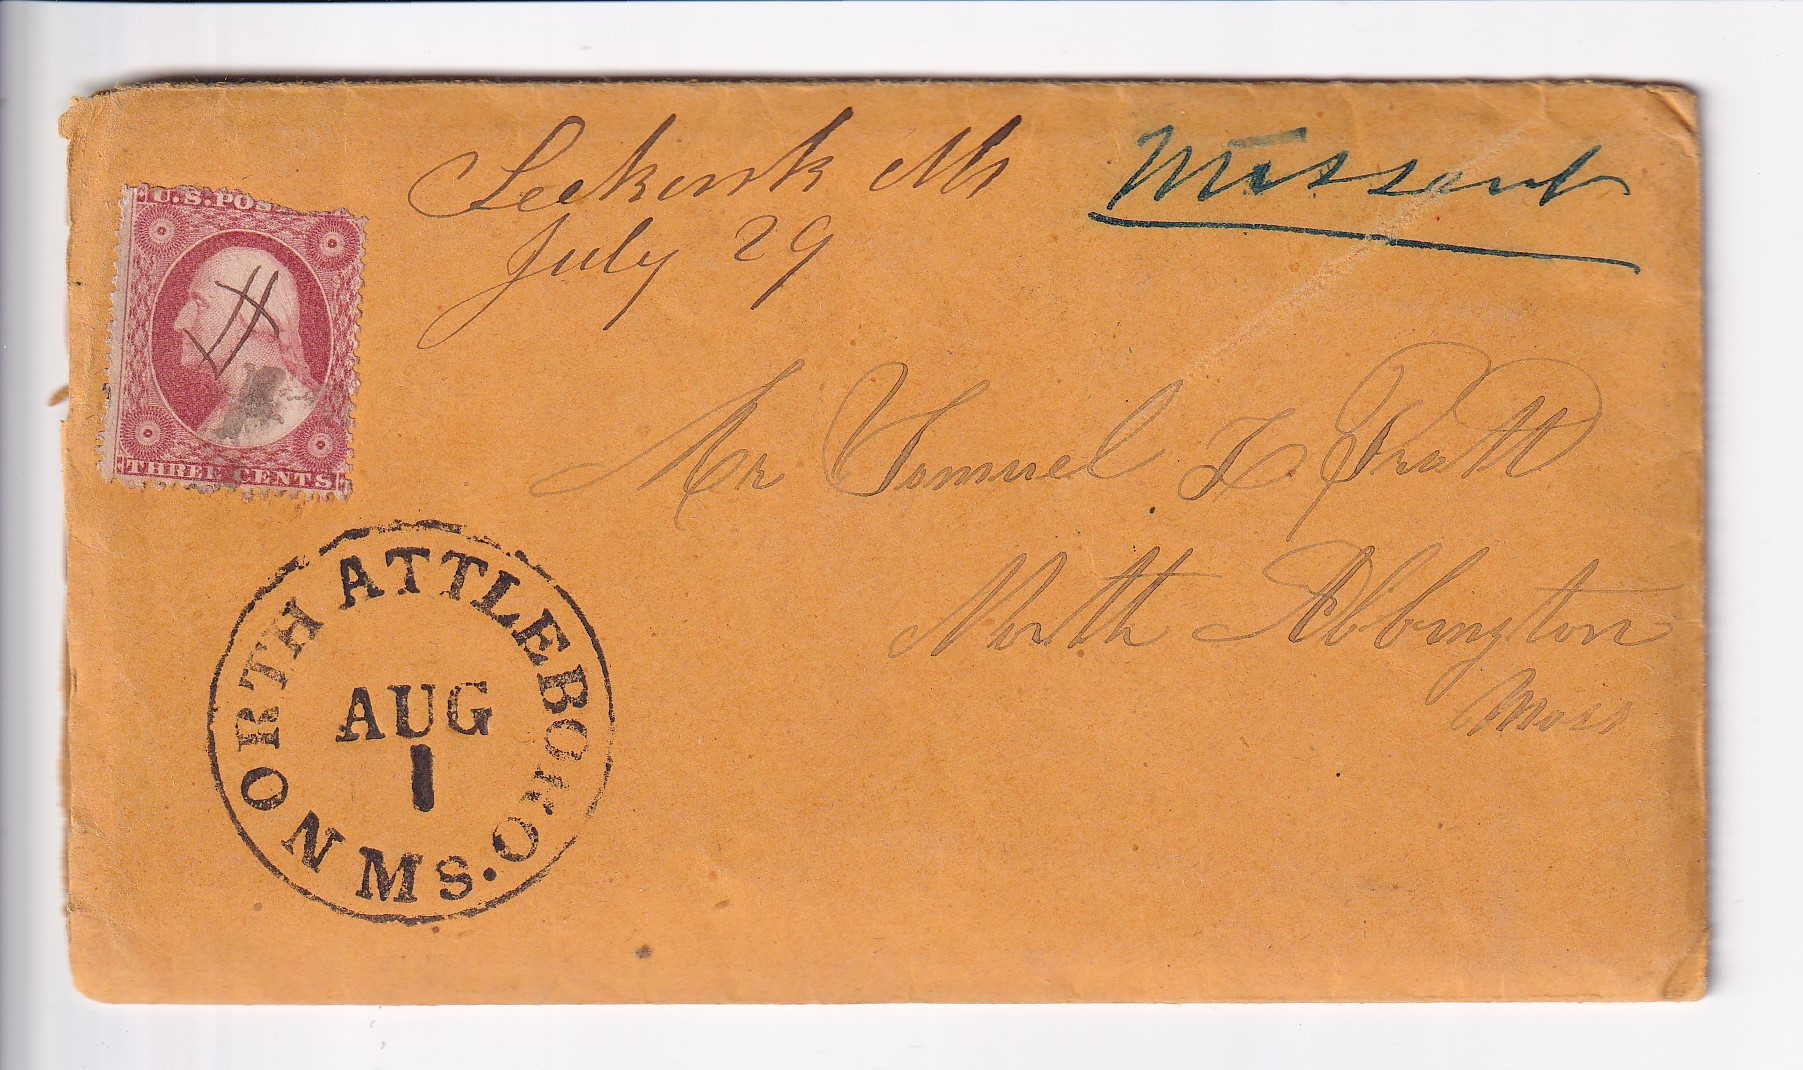 Seekonk Ms
July 29
Missent
U.S. POS
THREE CENTS
Mr Samuel L Pratt
North Abbington
Mass
NORTH ATTLEBORO.
MS.
AUG
1